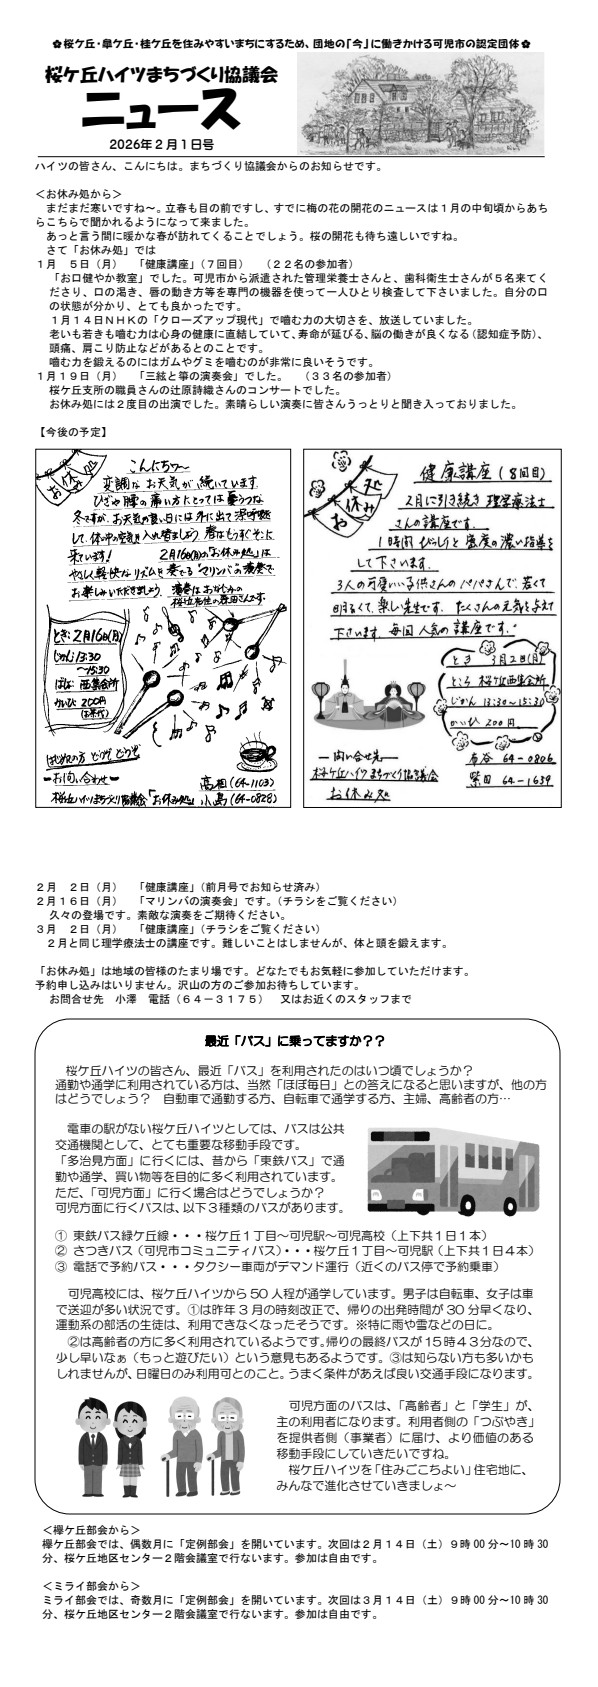 ✿桜ケ丘・皐ケ丘・桂ケ丘を住みやすいまちにするため、団地の「今」に働きかける可児市の認定団体✿
桜ケ丘ハイツまちづくり協議会
ニュース
2026年2月1日号
ハイツの皆さん、こんにちは。まちづくり協議会からのお知らせです。
＜お休み処から＞
まだまだ寒いですね～。立春も目の前ですし、すでに梅の花の開花のニュースは１月の中旬頃からあち
らこちらで聞かれるようになって来ました。
あっと言う間に暖かな春が訪れてくることでしょう。桜の開花も待ち遠しいですね。
さて「お休み処」では
１月　５日（月）　「健康講座」（７回目）　（２２名の参加者）
「お口健やか教室」でした。可児市から派遣された管理栄養士さんと、歯科衛生士さんが５名来てく
ださり、口の渇き、唇の動き方等を専門の機器を使って一人ひとり検査して下さいました。自分の口
の状態が分かり、とても良かったです。
１月１４日ＮＨＫの「クローズアップ現代」で噛む力の大切さを、放送していました。
老いも若きも噛む力は心身の健康に直結していて、寿命が延びる、脳の働きが良くなる（認知症予防）、
頭痛、肩こり防止などがあるとのことです。
噛む力を鍛えるのにはガムやグミを噛むのが非常に良いそうです。
１月１９日（月）　「三絃と箏の演奏会」でした。　（３３名の参加者）
桜ケ丘支所の職員さんの辻原詩織さんのコンサートでした。
お休み処には２度目の出演でした。素晴らしい演奏に皆さんうっとりと聞き入っておりました。
【今後の予定】
お休み処
こんにちわ～
変調な お天気が、続いています。
ひざや腰の痛い方にとっては憂うつな
冬ですが、お天気の良い日には外に出て深呼吸
して、体中の空気を入れ替ましょう。春はもうすぐそこに
来ています！　2月16日(月)の「お休み処」は
やさしく軽快なリズムを奏でる"マリンバ"の演奏で
お楽しみいただきましょう。
とき：2月16日(月)
じかん 13:30
～15:30
ばしょ 西集会所
かいひ 200円
(お茶代)
はじめての方 どうぞ どうぞ
ーお問い合わせー
桜ケ丘ハイツまちづくり協議会「お休み処」
高相(64-1103)
小島(64-0828)
お休み処
健康講座（8回目）
2月に引き続き 理学療法士
さんの講座です。
1時間 びっしりと 密度の濃い指導を
して下さいます。
3人の可愛いい子供さんのパパさんで、若くて
明るくて、楽しい先生です。たくさんの元気を与えて
下さいます。毎回 人気の講座です。
とき　3月2日(月)
ところ 桜ケ丘西集会所
じかん 13:30～15:30
かいひ 200円
ー問い合せ先ー
桜ケ丘ハイツまちづくり協議会
お休み処
布谷 64-0806
栗田 64-1639
２月　２日（月）　「健康講座」（前月号でお知らせ済み）
２月１６日（月）　「マリンバの演奏会」です。（チラシをご覧ください）
久々の登場です。素敵な演奏をご期待ください。
３月　２日（月）　「健康講座」（チラシをご覧ください）
２月と同じ理学療法士の講座です。難しいことはしませんが、体と頭を鍛えます。
「お休み処」は地域の皆様のたまり場です。どなたでもお気軽に参加していただけます。
予約申し込みはいりません。沢山の方のご参加お待ちしています。
お問合せ先　小澤　電話（６４－３１７５）　又はお近くのスタッフまで
最近「バス」に乗ってますか？？
桜ケ丘ハイツの皆さん、最近「バス」を利用されたのはいつ頃でしょうか？
通勤や通学に利用されている方は、当然「ほぼ毎日」との答えになると思いますが、他の方
はどうでしょう？　自動車で通勤する方、自転車で通学する方、主婦、高齢者の方…
電車の駅がない桜ケ丘ハイツとしては、バスは公共
交通機関として、とても重要な移動手段です。
「多治見方面」に行くには、昔から「東鉄バス」で通
勤や通学、買い物等を目的に多く利用されています。
ただ、「可児方面」に行く場合はどうでしょうか？
可児方面に行くバスは、以下３種類のバスがあります。
① 東鉄バス緑ケ丘線・・・桜ケ丘１丁目～可児駅～可児高校（上下共１日１本）
② さつきバス（可児市コミュニティバス）・・・桜ケ丘１丁目～可児駅（上下共１日４本）
③ 電話で予約バス・・・タクシー車両がデマンド運行（近くのバス停で予約乗車）
可児高校には、桜ケ丘ハイツから50人程が通学しています。男子は自転車、女子は車
で送迎が多い状況です。①は昨年3月の時刻改正で、帰りの出発時間が30分早くなり、
運動系の部活の生徒は、利用できなくなったそうです。※特に雨や雪などの日に。
②は高齢者の方に多く利用されているようです。帰りの最終バスが15時43分なので、
少し早いなぁ（もっと遊びたい）という意見もあるようです。③は知らない方も多いかも
しれませんが、日曜日のみ利用可とのこと。うまく条件があえば良い交通手段になります。
可児方面のバスは、「高齢者」と「学生」が、
主の利用者になります。利用者側の「つぶやき」
を提供者側（事業者）に届け、より価値のある
移動手段にしていきたいですね。
桜ケ丘ハイツを「住みごこちよい」住宅地に、
みんなで進化させていきましょ～
＜欅ケ丘部会から＞
欅ケ丘部会では、偶数月に「定例部会」を開いています。次回は２月１４日（土）９時00分～10時30
分、桜ケ丘地区センター２階会議室で行ないます。参加は自由です。
＜ミライ部会から＞
ミライ部会では、奇数月に「定例部会」を開いています。次回は３月１４日（土）９時00分～10時30
分、桜ケ丘地区センター２階会議室で行ないます。参加は自由です。